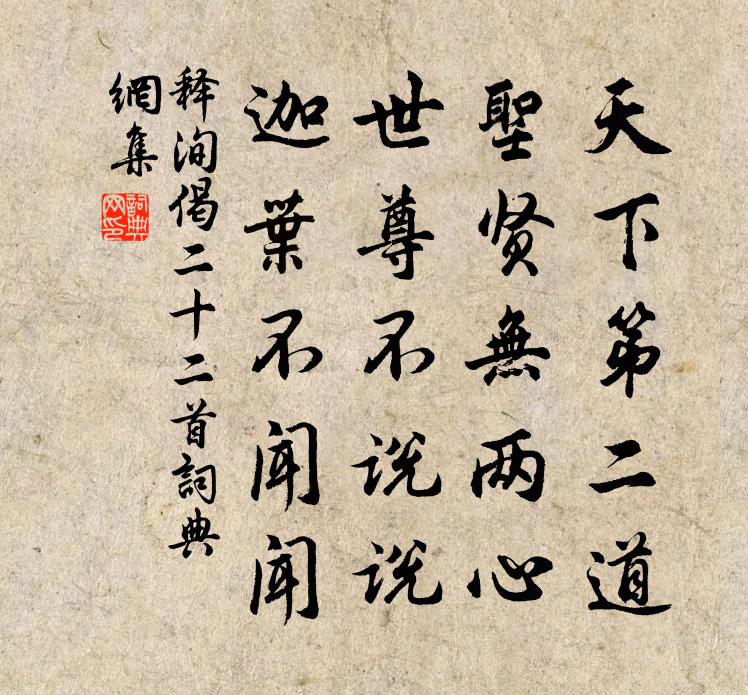 天下第二道
聖贤無两心
世尊不说说
迦葉不闻闻
释洵偈二十二首詞典
網集
詞典
网印